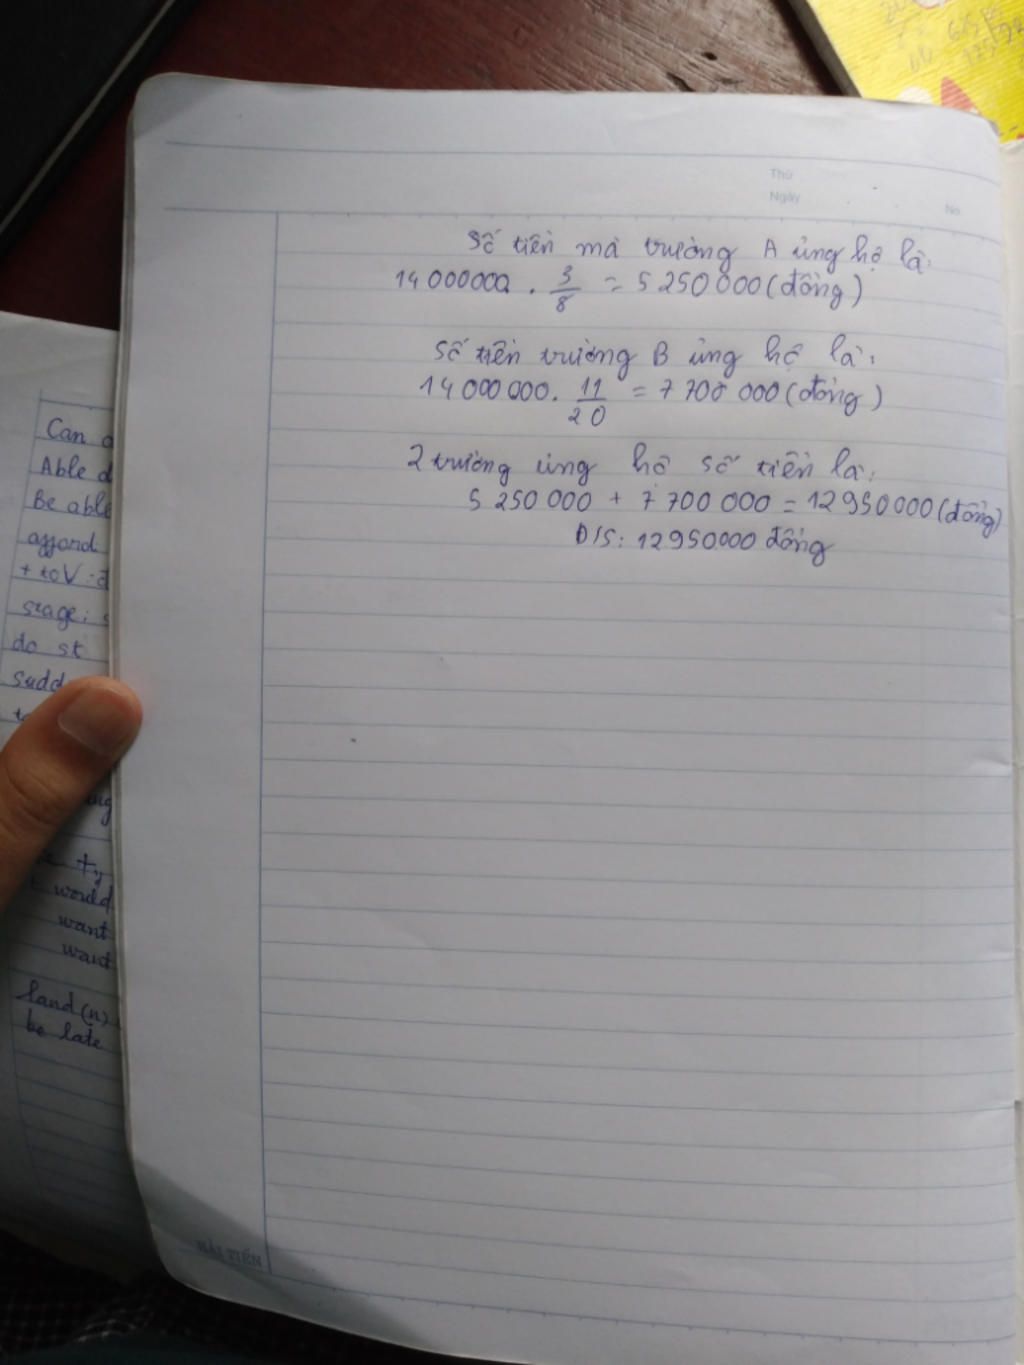 Thứ
Ngày
No
Số tiền mà trường A ủng hộ là:
14 000000 . 3/8 = 5 250 000 (đồng)
Số tiền trường B ủng hộ là:
14 000 000 . 11/20 = 7 700 000 (đồng)
2 trường ủng hộ số tiền là:
5 250 000 + 7 700 000 = 12 950 000 (đồng)
Đ/S: 12950000 đồng
Can
Able
Be able
afford
+ toV
stage:
do st
+ would
want
want
land (n)
be late
HẢI TIẾN